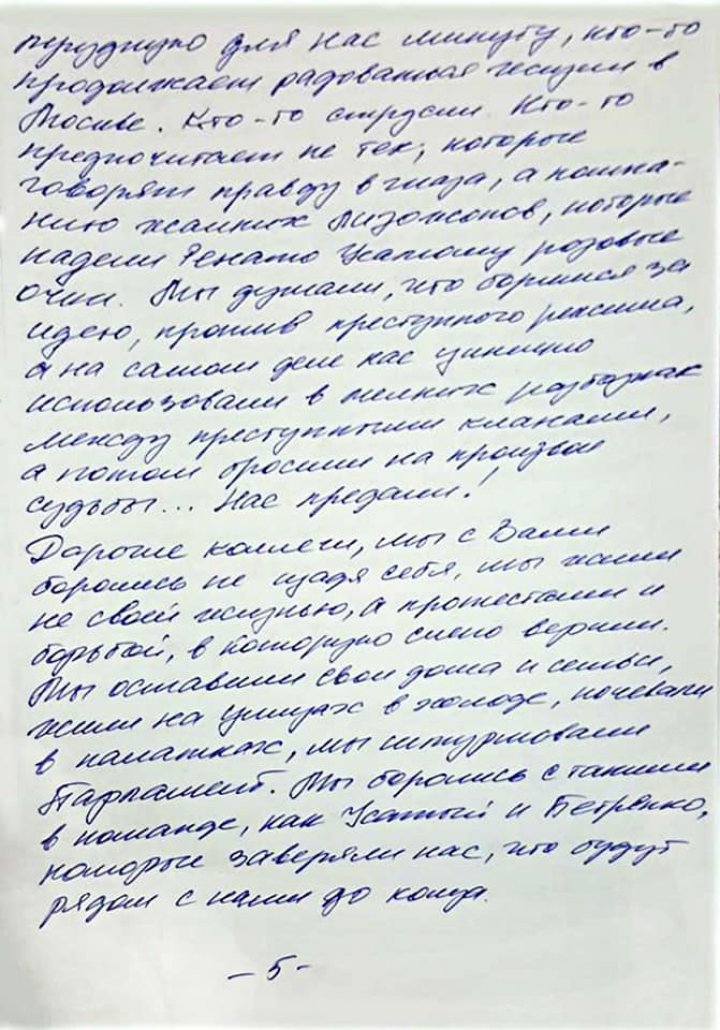 трудную для нас минуту, кто-то
продолжает радоваться жизни в
Москве. Кто-то струсил. Кто-то
предпочитает не тех, которые
говорят правду в глаза, а компа-
нию жалких лизоблюдов, которые
надели Ренато Усатому розовые
очки. Мы думали, что боремся за
идею, против преступного режима,
а на самом деле нас цинично
использовали в мелких разборках
между преступными кланами,
а потом бросили на произвол
судьбы... Нас предали!
Дорогие коллеги, мы с Вами
боролись не щадя себя, мы жили
не своей жизнью, а протестами и
борьбой, в которую слепо верили.
Мы оставили свои дома и семьи,
жили на улицах в холоде, ночевали
в палатках, мы штурмовали
Парламент. Мы боролись с такими
в команде, как Усатый и Петренко,
которые заверяли нас, что будут
рядом с нами до конца.
-5-